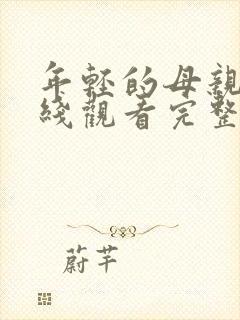 年輕的母親
綫觀看完整
蔚芊